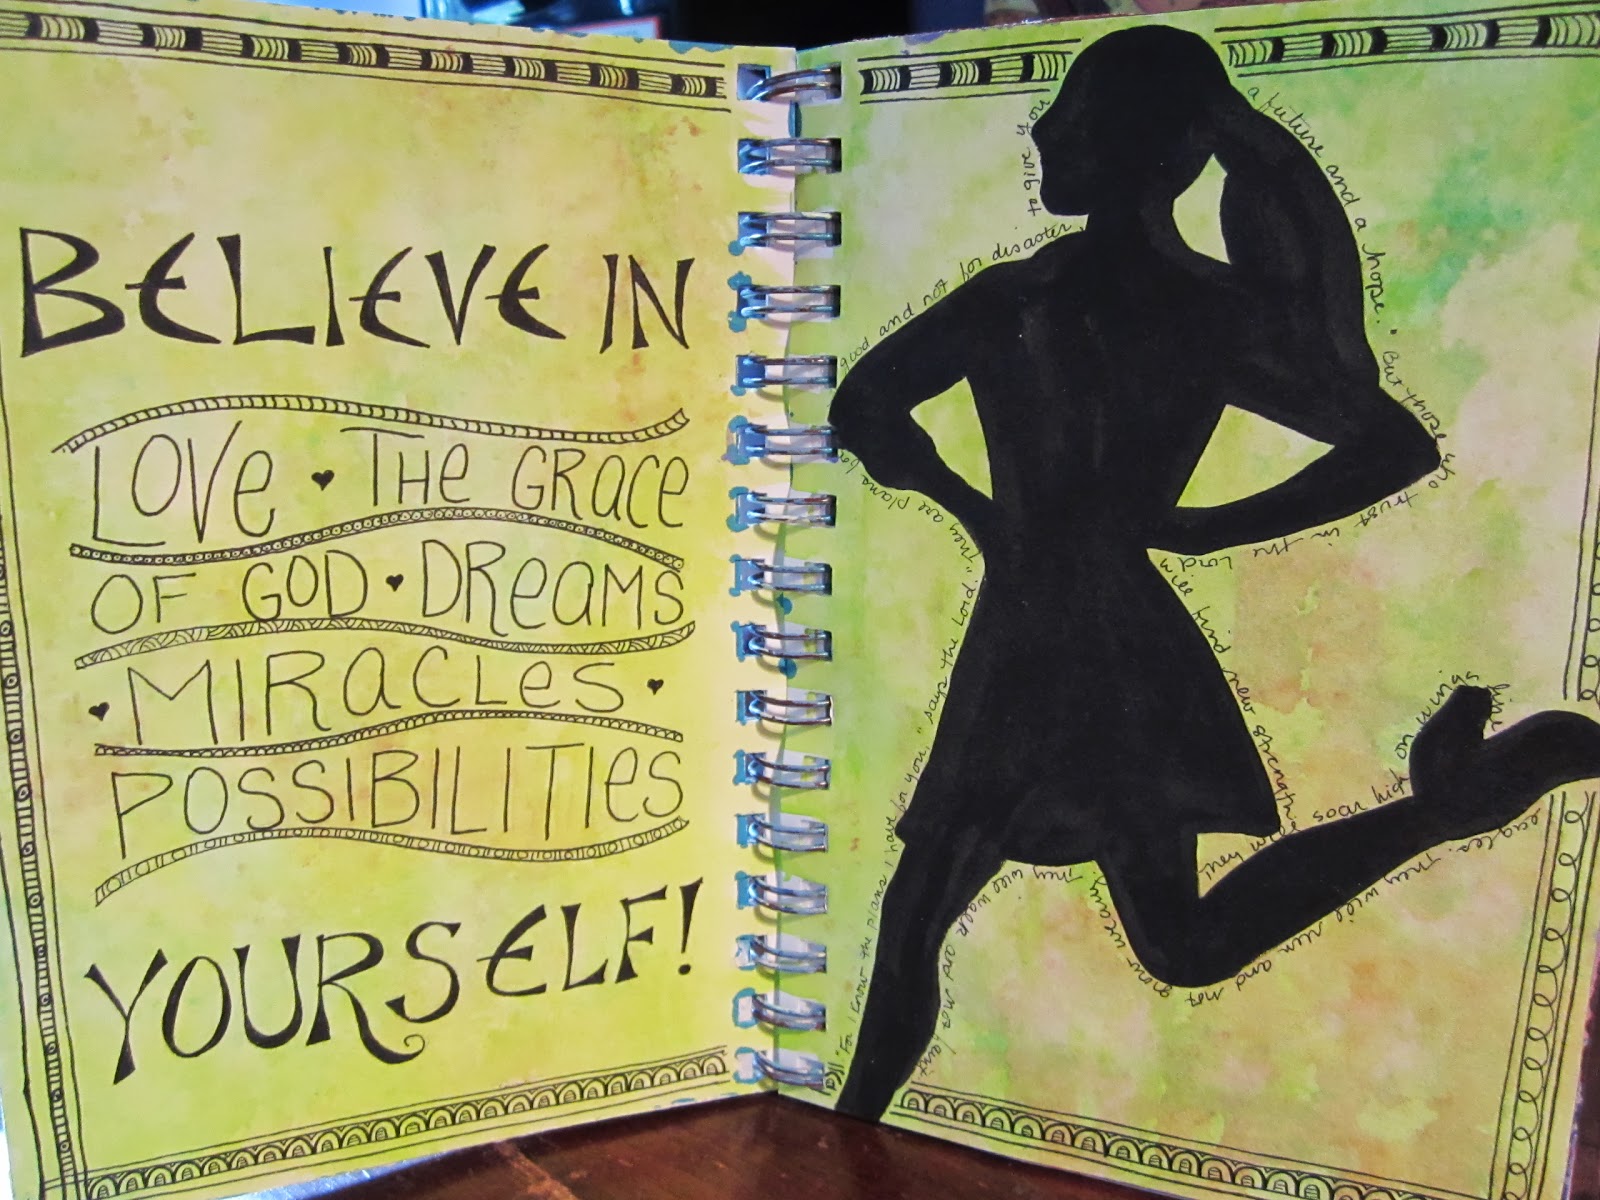 BELIEVE IN
LOVE • THE GRACE
OF GOD • DREAMS
• MIRACLES •
POSSIBILITIES
YOURSELF!
"For I know the plans I have for you," says the Lord. "They are plans for good and not for disaster, to give you a future and a hope." But those who trust in the Lord will find new strength. They will soar high on wings like eagles. They will run and not grow weary. They will walk and not faint.